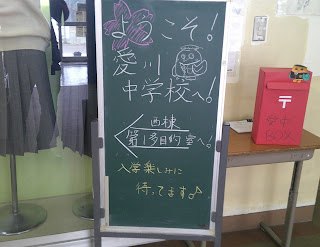 ようこそ!
愛川
中学校へ!
西棟
第1多目的室へ!
入学楽しみに
待ってます♪
〒